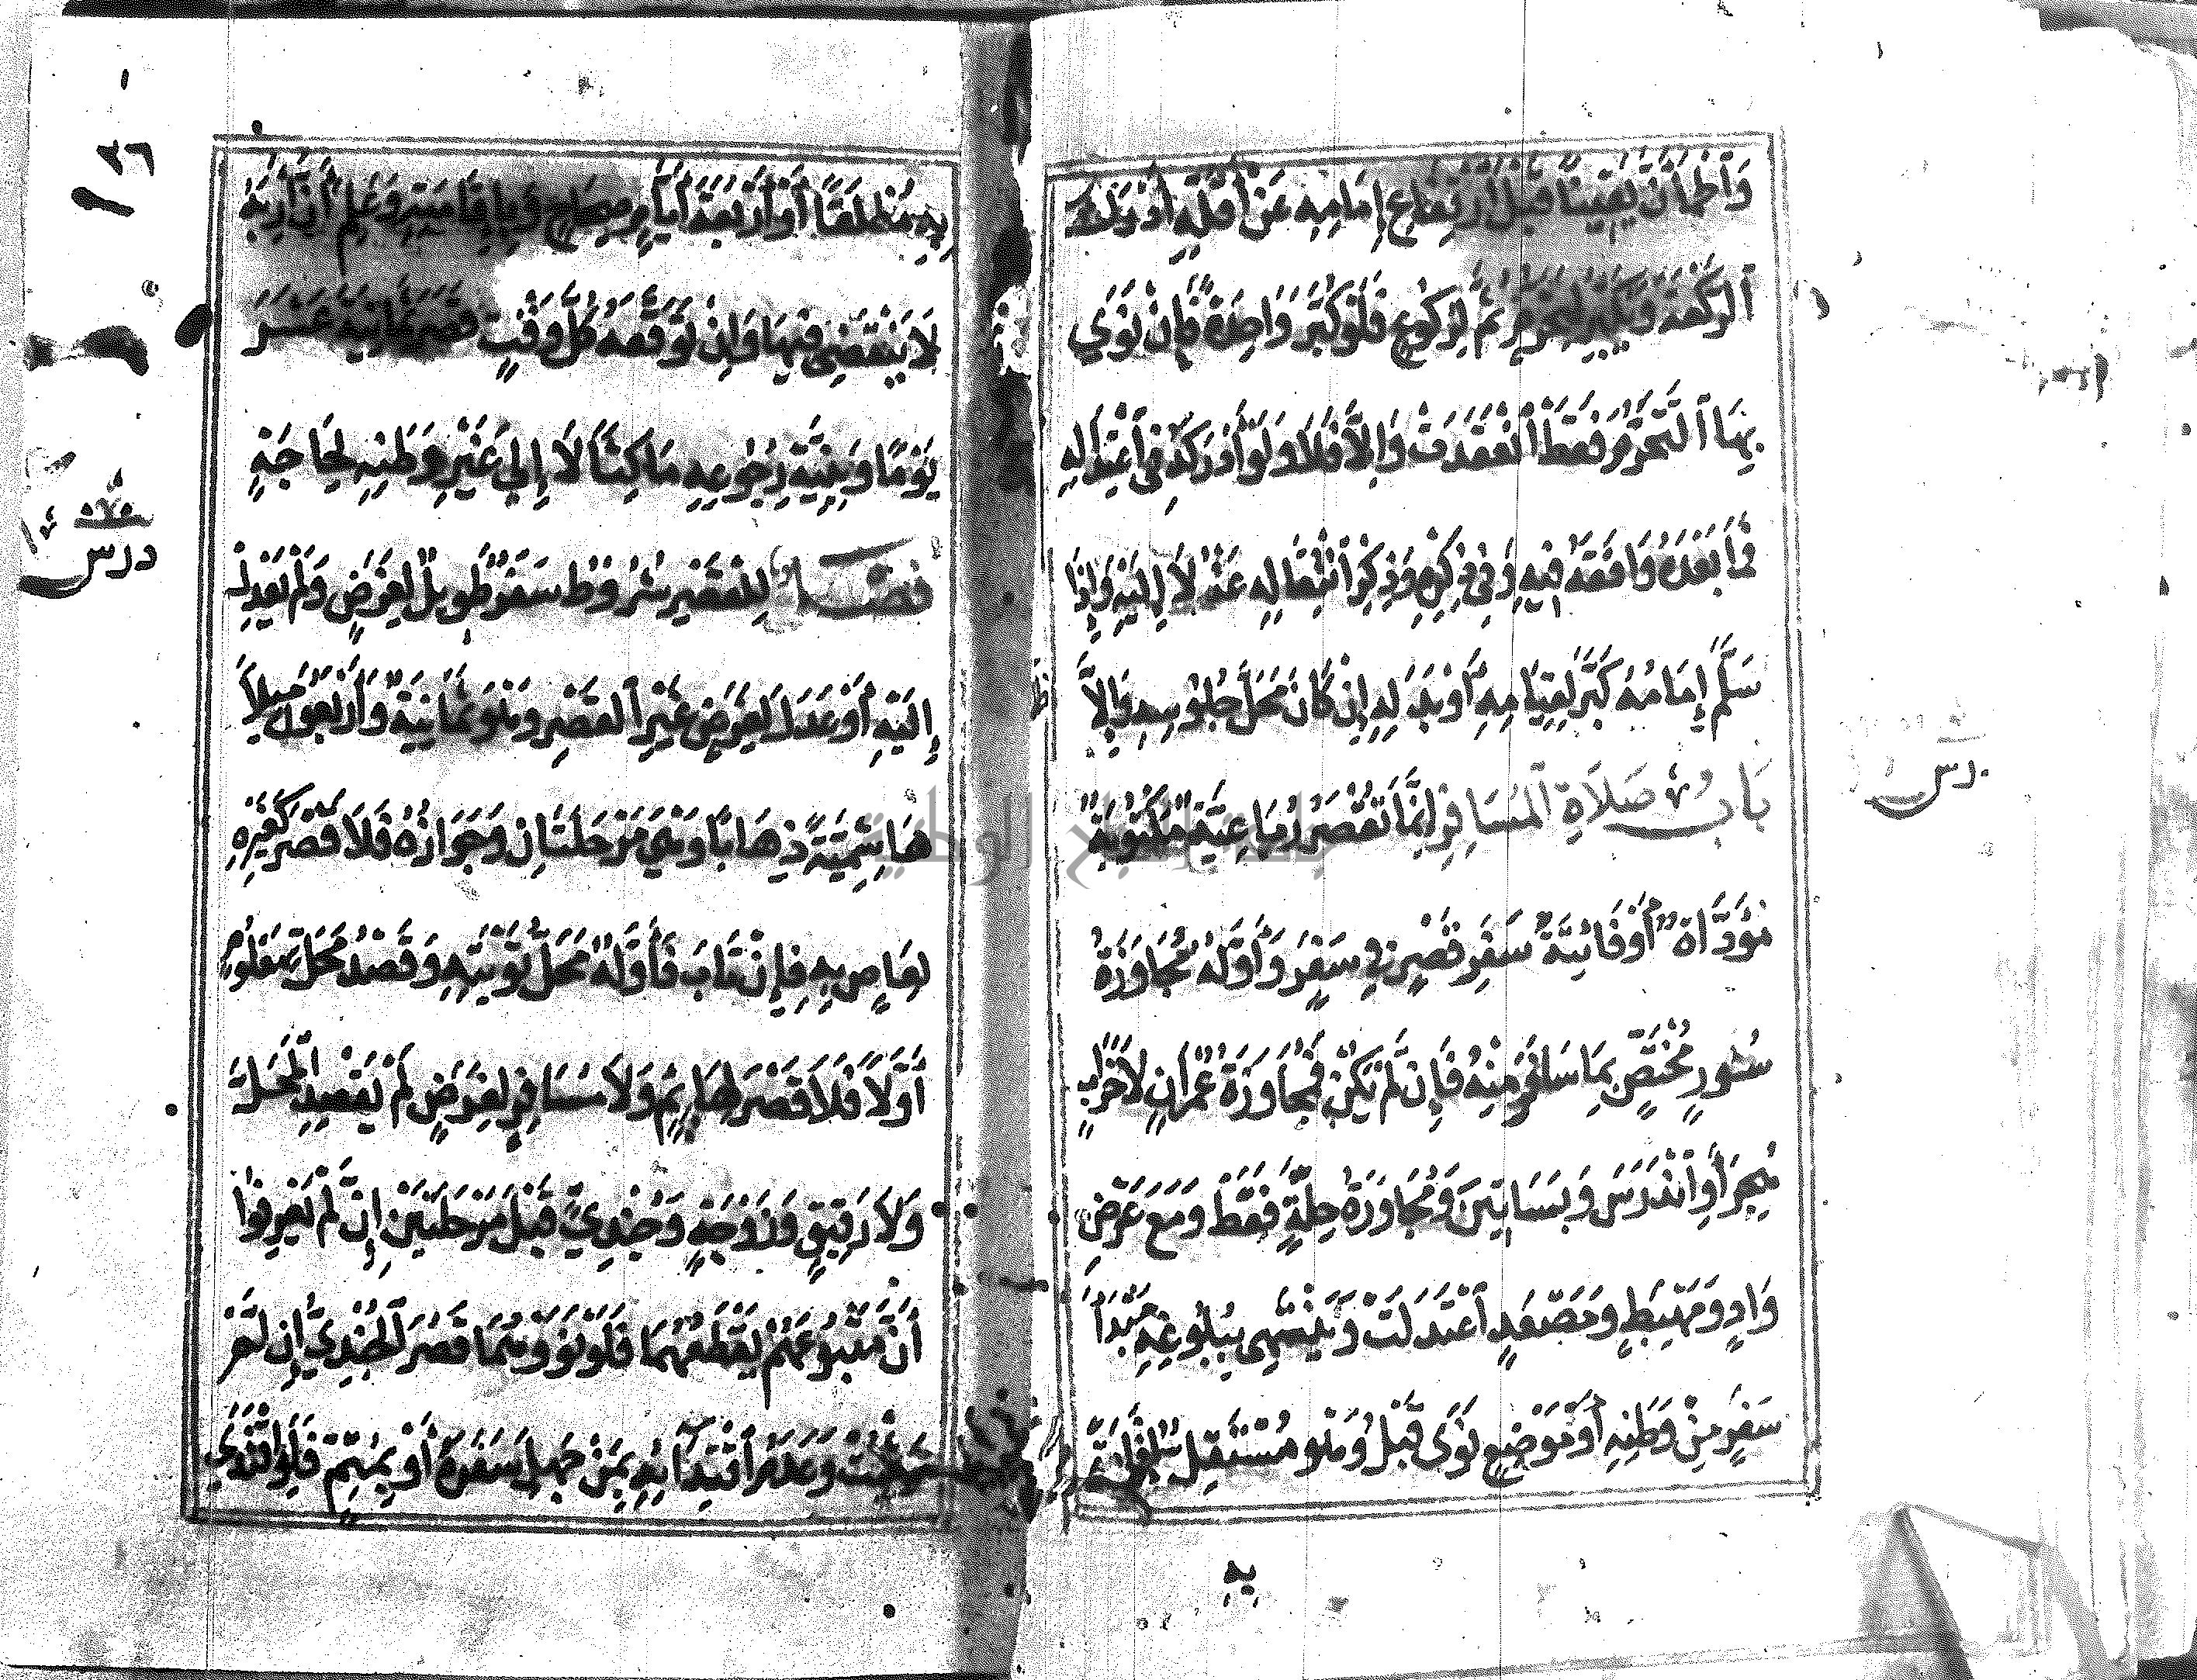 وَٱطْمَأَنَّ يَقِينًا قَبْلَ ٱرْتِفَاعِ إِمَامِهِ عَنْ أَقَلِّهِ أَدْرَكَ
ٱلرَّكْعَةَ وَيُكَبِّرُ لِتَحَرُّمٍ ثُمَّ لِرُكُوعٍ فَلَوْ كَبَّرَ وَاحِدَةً فَإِنْ نَوَى
بِهَا ٱلتَّحَرُّمَ فَقَطْ ٱنْعَقَدَتْ وَإِلَّا فَلَا وَلَوْ أَدْرَكَهُ فِى ٱعْتِدَالِهِ
فَمَا بَعْدَهُ وَافَقَهُ فِيهِ وَفِى ذِكْرِهِ وَذِكْرِ ٱنْتِقَالِهِ عَنْهُ لَا إِلَيْهِ وَإِذَا
سَلَّمَ إِمَامُهُ كَبَّرَ لِقِيَامِهِ أَوْ بَدَلِهِ إِنْ كَانَ مَحَلَّ جُلُوسِهِ وَإِلَّا
فَلَا
بَابُ صَلَاةِ ٱلْمُسَافِرِ إِنَّمَا تُقْصَرُ رُبَاعِيَّةٌ مَكْتُوبَةٌ
مُؤَدَّاةٌ أَوْ فَائِتَةُ سَفَرِ قَصْرٍ فِى سَفَرٍ وَأَوَّلُهُ مُجَاوَزَةُ
سُورٍ مُخْتَصٍّ بِمَا سَافَرَ مِنْهُ فَإِنْ لَمْ يَكُنْ فَمُجَاوَزَةُ عُمْرَانٍ لَا خَرَابٍ
هُجِرَ أَوِ ٱنْدَرَسَ وَبَسَاتِينَ وَمُجَاوَزَةُ حِلَّةٍ فَقَطْ وَمَعَ عَرْضِ
وَادٍ وَمَهْبِطٍ وَمَصْعَدٍ ٱعْتَدَلَتْ وَيَنْتَهِى بِبُلُوغِهِ مَبْدَأَ
سَفَرٍ مِنْ وَطَنِهِ أَوْ مَوْضِعٍ نَوَى قَبْلُ وَهُوَ مُسْتَقِلٌّ إِقَامَةً
بِهِ
درس
بِهِ مُطْلَقًا أَوْ أَرْبَعَةَ أَيَّامٍ صِحَاحٍ وَبِإِقَامَتِهِ وَعَلِمَ أَنَّ إِرْبَهُ
لَا يَنْقَضِى فِيهَا وَإِنْ تَوَقَّعَهُ كُلَّ وَقْتٍ قَصَرَ ثَمَانِيَةَ عَشَرَ
يَوْمًا وَبِنِيَّةِ رُجُوعِهِ مَاكِثًا لَا إِلَى غَيْرِ وَطَنِهِ لِحَاجَةٍ
فَصْلٌ لِلْقَصْرِ شُرُوطٌ سَفَرٌ طَوِيلٌ لِغَرَضٍ وَلَمْ يَعْدِلْ
إِلَيْهِ أَوْ عَدَلَ لِغَرَضٍ غَيْرِ ٱلْقَصْرِ وَهُوَ ثَمَانِيَةٌ وَأَرْبَعُونَ مِيلًا
هَاشِمِيَّةً ذِهَابًا وَهِىَ مَرْحَلَتَانِ وَجَوَازُهُ فَلَا قَصْرَ كَغَيْرِهِ
لِعَاصٍ بِهِ فَإِنْ تَابَ فَأَوَّلُهُ مَحَلُّ تَوْبَتِهِ وَقَصْدُ مَحَلٍّ مَعْلُومٍ
أَوَّلًا فَلَا قَصْرَ لِهَائِمٍ وَلَا مُسَافِرٍ لِغَرَضٍ لَمْ يَقْصِدِ ٱلْمَحَلَّ
وَلَا رَقِيقٍ وَزَوْجَةٍ وَجُنْدِىٍّ قَبْلَ مَرْحَلَتَيْنِ إِنْ لَمْ يَعْرِفُوا
أَنَّ مَتْبُوعَهُمْ يَقْطَعُهُمَا فَلَوْ نَوَوْهُمَا قَصَرَ ٱلْجُنْدِىُّ إِنْ لَمْ
يُثْبَتْ وَعَدَمُ ٱقْتِدَائِهِ بِمَنْ جَهِلَ سَفَرَهُ أَوْ بِمُتِمٍّ فَلَوِ ٱقْتَدَى
درس